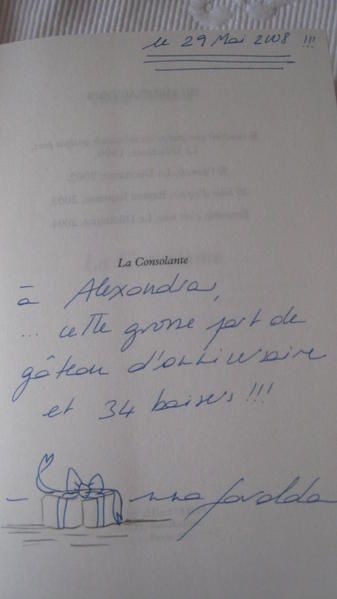 le 29 Mai 2008 !!!
La Consolante
à Alexandra,
... cette grosse part de
gâteau d'anniversaire
et 34 baisers !!!
anna gavalda